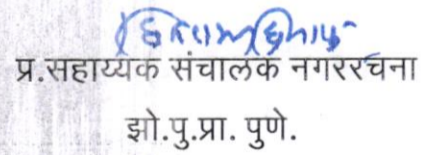 प्र.सहाय्यक संचालक नगररचना
झो.पु.प्रा. पुणे.